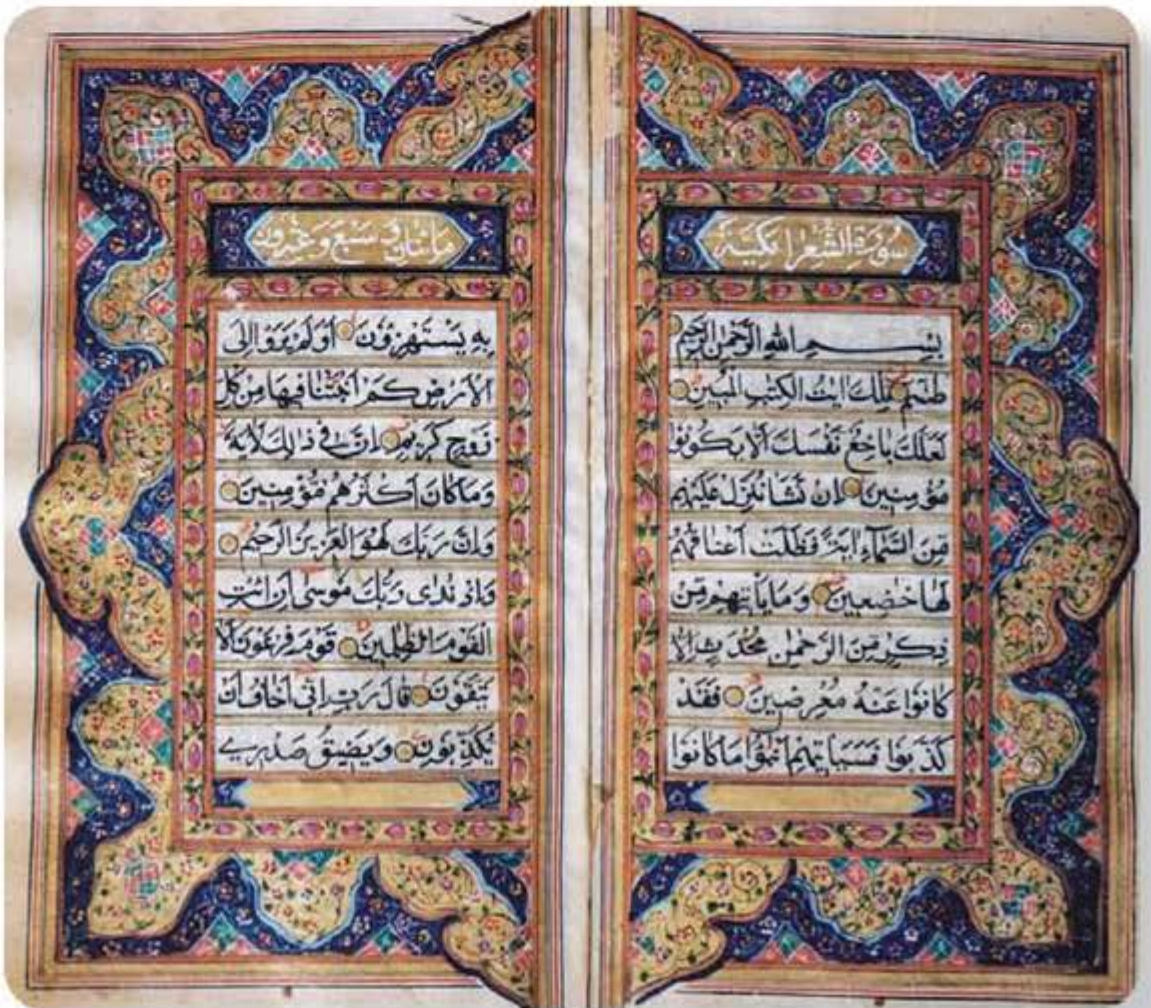 سُورَةِ الشُّعَرَا مَكِيَّة
بِسْمِ اللهِ الرَّحْمٰنِ الرَّحِيْمِ
طٰسٓمّٓ تِلْكَ اٰيٰتُ الْكِتٰبِ الْمُبِيْنِ
لَعَلَّكَ بَاخِعٌ نَّفْسَكَ اَلَّا يَكُوْنُوْا
مُؤْمِنِيْنَ اِنْ نَّشَاْ نُنَزِّلْ عَلَيْهِمْ
مِّنَ السَّمَآءِ اٰيَةً فَظَلَّتْ اَعْنَاقُهُمْ
لَهَا خٰضِعِيْنَ وَمَا يَاْتِيْهِمْ مِّنْ
ذِكْرٍ مِّنَ الرَّحْمٰنِ مُحْدَثٍ اِلَّا
كَانُوْا عَنْهُ مُعْرِضِيْنَ فَقَدْ
كَذَّبُوْا فَسَيَاْتِيْهِمْ اَنْۢبٰٓؤُا مَا كَانُوْا
مائتان و سبع و عشرون
بِهٖ يَسْتَهْزِؤُوْنَ اَوَلَمْ يَرَوْا اِلَى
الْاَرْضِ كَمْ اَنْۢبَتْنَا فِيْهَا مِنْ كُلِّ
زَوْجٍ كَرِيْمٍ اِنَّ فِيْ ذَالِكَ لَاٰيَةً
وَمَا كَانَ اَكْثَرُهُمْ مُّؤْمِنِيْنَ
وَاِنَّ رَبَّكَ لَهُوَ الْعَزِيْزُ الرَّحِيْمُ
وَاِذْ نَادٰى رَبُّكَ مُوْسٰى اَنِ ائْتِ
الْقَوْمَ الظّٰلِمِيْنَ قَوْمَ فِرْعَوْنَ اَلَا
يَتَّقُوْنَ قَالَ رَبِّ اِنِّيْ اَخَافُ اَنْ
يُّكَذِّبُوْنِ وَيَضِيْقُ صَدْرِيْ